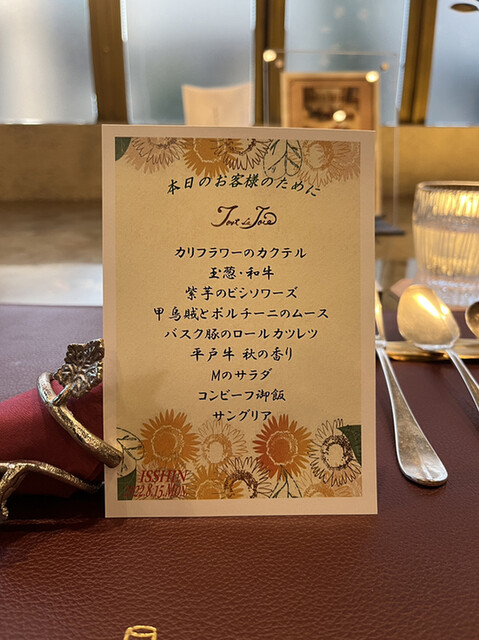 本日のお客様のために
Tout La Joie
カリフラワーのカクテル
玉葱・和牛
紫芋のビシソワーズ
甲烏賊とポルチーニのムース
バスク豚のロールカツレツ
平戸牛 秋の香り
Mのサラダ
コンビーフ御飯
サングリア
ISSHIN
22.8.15.MON